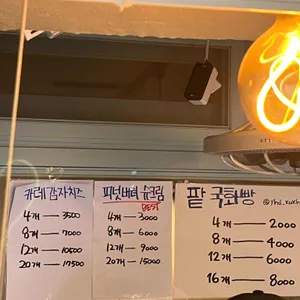 카레 감자치즈
4개 — 3500
8개 — 7000
12개 — 10500
20개 — 17500
피넛버터 슈크림
BEST
4개 — 3000
8개 — 6000
12개 — 9000
20개 — 15000
팥 국화빵
4개 — 2000
8개 — 4000
12개 — 6000
16개 — 8000